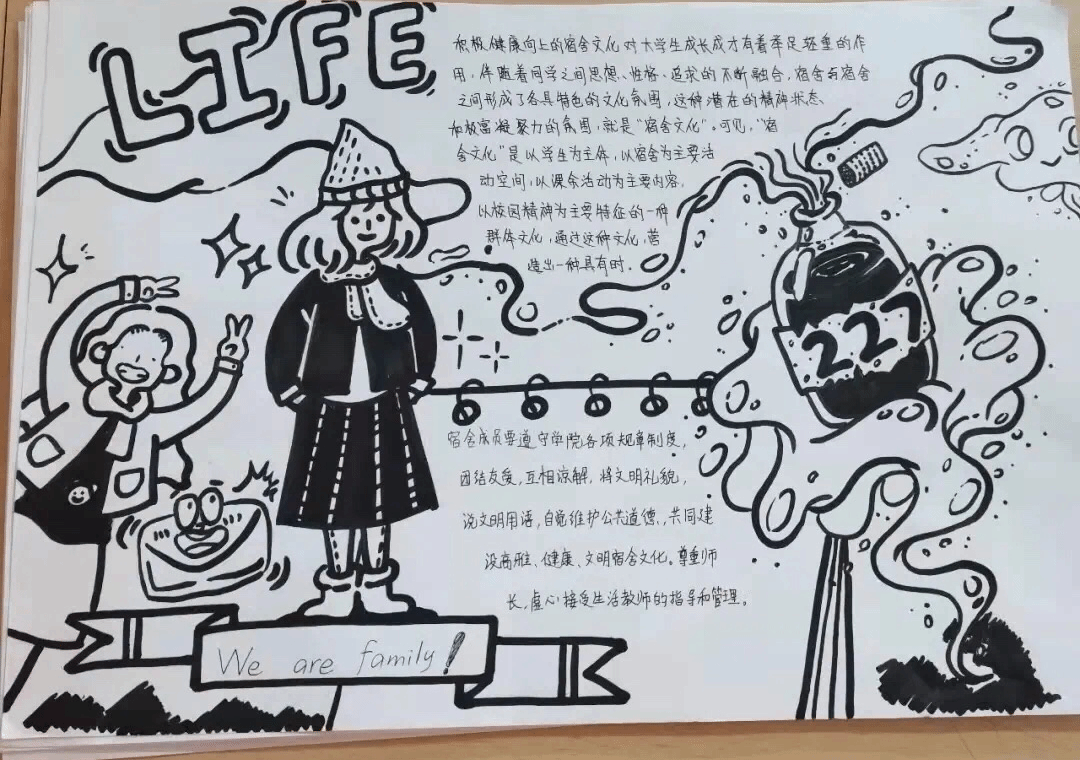 LIFE
积极健康向上的宿舍文化对大学生成长成才有着举足轻重的作
用，伴随着同学之间思想、性格、追求的不断融合，宿舍与宿舍
之间形成了各具特色的文化氛围，这种潜在的精神状态
和极富凝聚力的氛围，就是“宿舍文化”。可见，“宿
舍文化”是以学生为主体，以宿舍为主要活
动空间，以课余活动为主要内容，
以校园精神为主要特征的一种
群体文化，通过这种文化，营
造出一种具有时。
227
宿舍成员要遵守学院各项规章制度，
团结友爱，互相谅解，将文明礼貌，
说文明用语，自觉维护公共道德，共同建
设高雅、健康、文明宿舍文化。尊重师
长，虚心接受生活教师的指导和管理。
We are family!